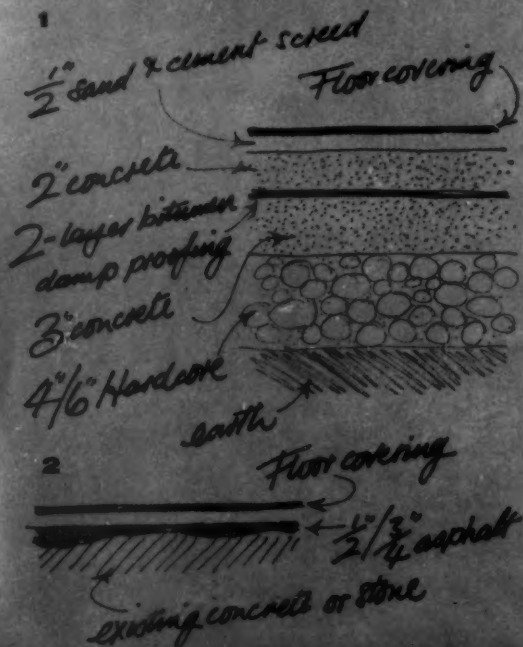 1
1/2" sand & cement screed
Floorcovering
2" concrete
2-layer bitumen
damp proofing
3" concrete
4"/6" Hardcore
earth
2
Floorcovering
1/2"/3/4" asphalt
existing concrete or stone